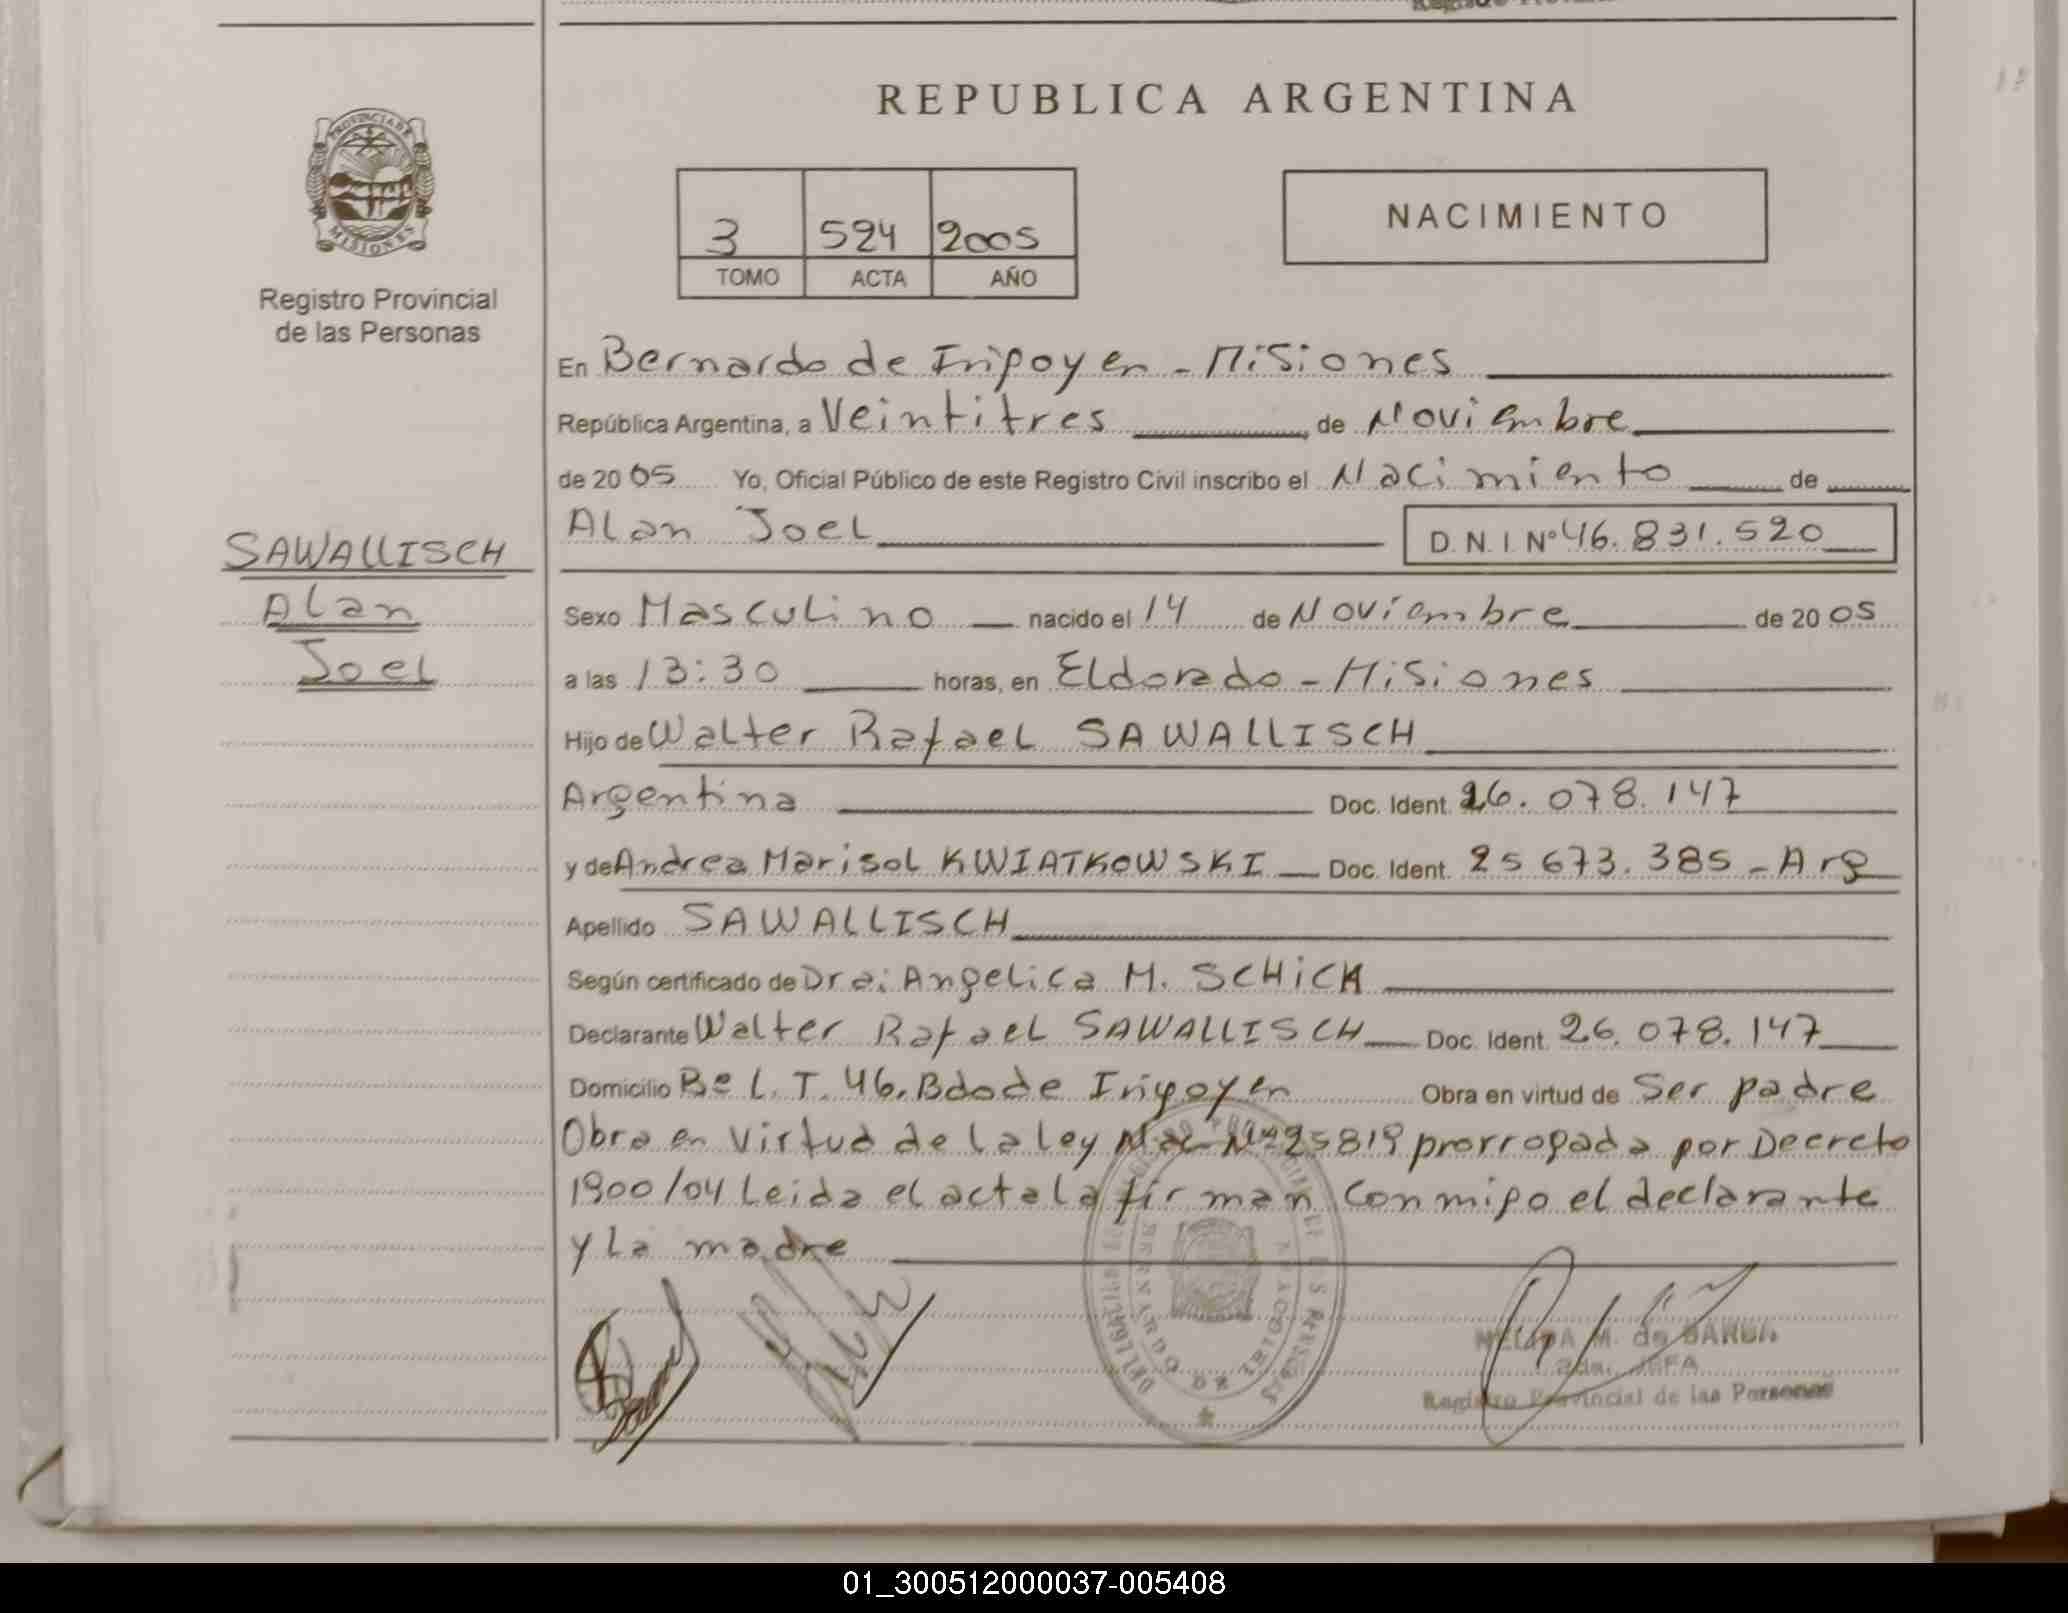 REPUBLICA ARGENTINA
PROVINCIA DE
MISIONES
Registro Provincial
de las Personas
3 524 2005
TOMO ACTA AÑO
NACIMIENTO
En Bernardo de Irigoyen - Misiones
República Argentina, a Veintitres de Noviembre
de 2005 Yo, Oficial Público de este Registro Civil inscribo el Nacimiento de
Alan Joel D.N.I. Nº 46.831.520
SAWALLISCH
Alan
Joel
Sexo Masculino nacido el 14 de Noviembre de 2005
a las 13:30 horas, en Eldorado - Misiones
Hijo de Walter Rafael SAWALLISCH
Argentina Doc. Ident. 26.078.147
y de Andrea Marisol KWIATKOWSKI Doc. Ident. 25673.385 - Arg
Apellido SAWALLISCH
Según certificado de Dra: Angelica M. SCHICK
Declarante Walter Rafael SAWALLISCH Doc. Ident. 26.078.147
Domicilio Bº L.T. 46. Bdo de Irigoyen Obra en virtud de Ser padre
Obra en virtud de la ley Nac Nº 25819 prorrogada por Decreto
1900/04 Leida el acta la firman conmigo el declarante
y La madre
M. de
JEFA
Registro Provincial de las Personas
01_300512000037-005408